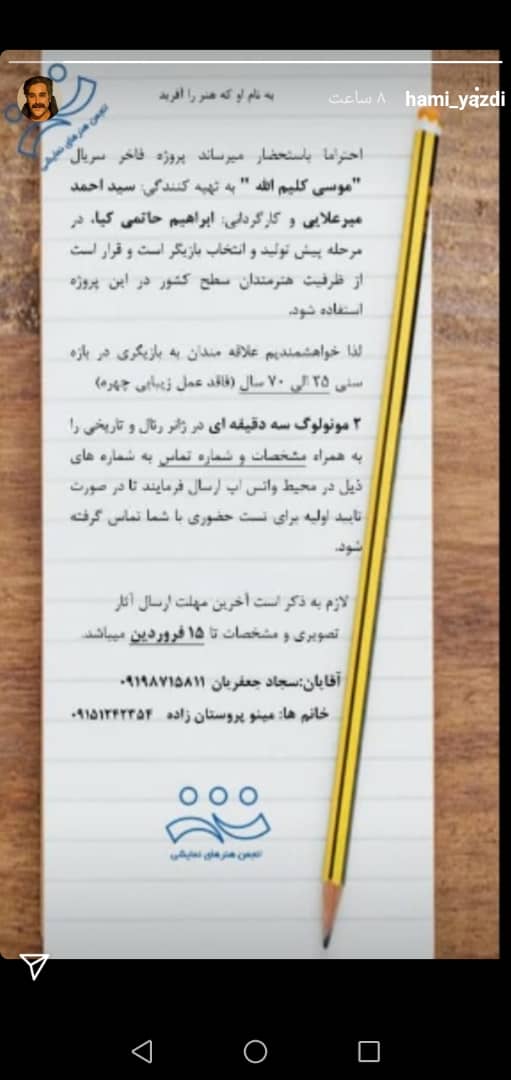 hami_yazdi
۸ ساعت
به نام او که هنر را آفرید
انجمن هنرهای نمایشی
احتراما باستحضار میرساند پروژه فاخر سریال
"موسی کلیم الله" به تهیه کنندگی: سید احمد
میرعلایی و کارگردانی: ابراهیم حاتمی کیا، در
مرحله پیش تولید و انتخاب بازیگر است و قرار است
از ظرفیت هنرمندان سطح کشور در این پروژه
استفاده شود.
لذا خواهشمندیم علاقه مندان به بازیگری در بازه
سنی ۲۵ الی ۷۰ سال (فاقد عمل زیبایی چهره)
۲ مونولوگ سه دقیقه ای در ژانر رئال و تاریخی را
به همراه مشخصات و شماره تماس به شماره های
ذیل در محیط واتس اپ ارسال فرمایند تا در صورت
تایید اولیه برای تست حضوری با شما تماس گرفته
شود.
لازم به ذکر است آخرین مهلت ارسال آثار
تصویری و مشخصات تا ۱۵ فروردین میباشد.
آقایان:سجاد جعفریان ۰۹۱۹۸۷۱۵۸۱۱
خانم ها: مینو پروستان زاده ۰۹۱۵۱۲۴۲۳۵۴
انجمن هنرهای نمایشی